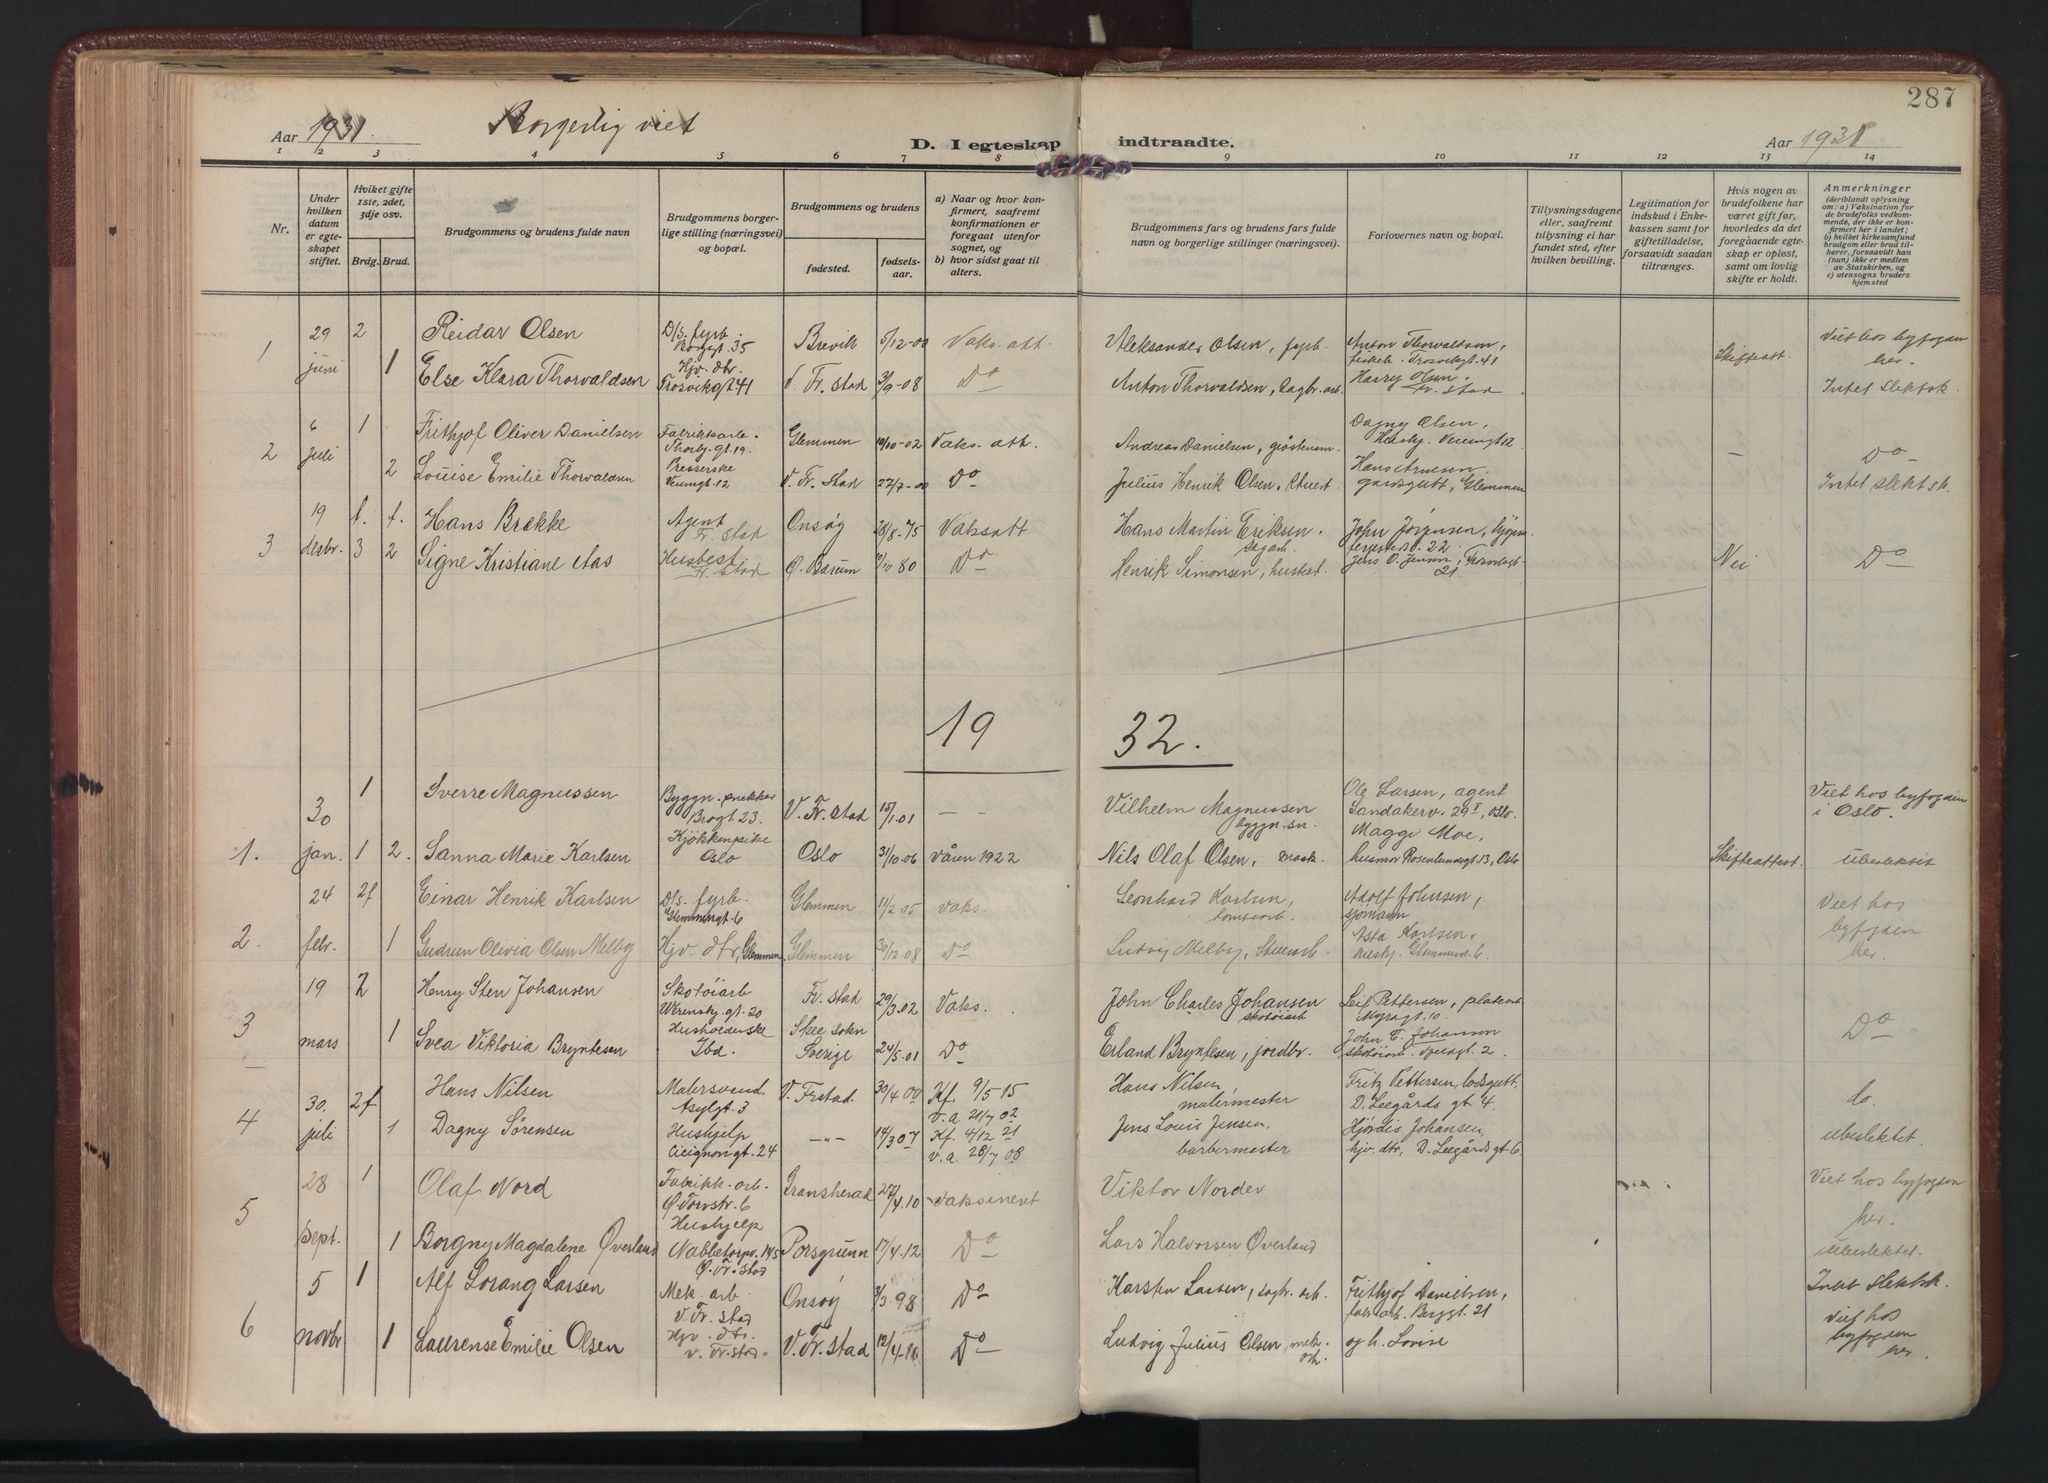 287
Aar 1931. Borgerlig viet D. I egteskap indtraadte. Aar 1931
1 2 3 4 5 6 7 8 9 10 11 12 13 14
Nr.
Under hvilken datum er egteskapet stiftet.
Hviket gifte 1ste, 2det, 3dje osv.
Brdg. Brud.
Brudgommens og brudens fulde navn
Brudgommens borgerlige stilling (næringsvei) og bopæl.
Brudgommens og brudens
fødested.
fødselsaar.
a) Naar og hvor konfirmert, saafremt konfirmationen er foregaat utenfor sognet, og
b) hvor sidst gaat til alters.
Brudgommens fars og brudens fars fulde navn og borgerlige stillinger (næringsvei).
Forlovernes navn og bopæl.
Tillysningsdagene eller, saafremt tillysning ei har fundet sted, efter hvilken bevilling.
Legitimation for indskud i Enkekassen samt for giftetilladelse, forsaavidt saadan tiltrænges.
Hvis nogen av brudefolkene har været gift før, hvorledes da det foregaaende egteskap er opløst, samt om lovlig skifte er holdt.
Anmerkninger (deriblandt oplysning om: a) Vaksination for de brudefolks vedkommende, der ikke er konfirmert her i landet; b) hvilket kirkesamfund brudgom eller brud tilhører, forsaavidt han (hun) ikke er medlem av Statskirken, og c) utensogns bruders hjemsted
1 29 juni 2 Reidar Olsen D/s. fyrb. Borgegt. 35 Brevik 5/12-00 Vaks. att. Aleksander Olsen, fyrb. Anton Thorvaldsen, Trosvikgt 41 Skifteatt. Viet hos byfogden her.
1 Else Klara Thorvaldsen Hjv. dtr. Trosvikgt 41 V. Fr. stad 3/9-08 Do Anton Thorvaldsen, Dagbr. arb. Harry Olsen, Fr. stad Intet slektsk.
2 6 juli 1 Frithjof Oliver Danielsen Fabrikkarb. Thorbj. gt. 19. Glemmen 10/10-02 Vaks. att. Andreas Danielsen, Dagny Olsen, Veumgt 12 — Do
2 Louise Emilie Thorvaldsen Presserske Veumgt. 12 V. Fr. stad 22/7-00 Do Julius Henrik Olsen, Hans Arnesen, gardsgutt, Glemmen Intet slektsk.
3 19 desbr. f. f. Hans Brække Agent Fr. stad Onsøy 28/8-75 Vaksatt Hans Martin Eriksen, sagarb. John Jørgensen, 22
3 2 Signe Kristiane Aas Husbest Fr. stad Ø. Bærum 80 Do Henrik Simonsen, Jens O. Jensen, 21 Nei Do
19 32.
1. 30 jan. 1 Sverre Magnussen Byggn. snekker Brogt 23. V. Fr. stad 15/1.01 — — Vilhelm Magnussen byggn. sn. Ole Larsen, agent Sandakerv. 29 I, Oslo. Viet hos byfogden i Oslo.
1 2. Sanna Marie Karlsen Kjøkkenpike Oslo Oslo 31/10.06 Våren 1922 Nils Olaf Olsen, mask. Maggi Moe, husmor Rosenlundsgt. 13, Oslo Skifteattest ubeslektet
2. 24 febr. 2f Einar Henrik Karlsen D/s. fyrb. Glemmengt. 6 Glemmen 11/2 05 Vaks. Leonhard Karlsen, tomtearb. Adolf Johnsen, sjømann Viet hos byfogden her.
1 Gudrun Olivia Olsen Melby Hjv. dtr, Glemmen Glemmen 30/12.08 Do Ludvig Melby, Asta Karlsen,
3 19 mars 2 Henry Sten Johansen Skotøiarb Werenskj. gt. 20 Fr. stad 29/3.02 Vaks. John Charles Johansen skotøiarb Leif Pettersen, platearb Myragt. 10.
1 Svea Viktoria Bryntesen Husholderske Ibd. Skee sokn Sverige 24/5.01 Do Erland Bryntesen, jordbr. John E. Johansen skotøiarb. 2. Do
4 30. juli 2f Hans Nilsen Malersvend. Asylgt. 3 V. Frstad. 30/4 00 Kf. 9/5 15 V.a. 21/7 02 Hans Nilsen, malermester Fritz Pettersen, losgutt, D. Leegårds gt. 4. do.
1 Dagny Sørensen Hushjelp Cicignongt. 24 —"— 14/3 07 Kf. 4/12 21 V.a. 28/7 08 Jens Louis Jensen, barbermester Hjørdis Johansen, hjv. dtr, D. Leegårdsgt 6. ubeslektet.
5 28 sept. 1 Olaf Nord Fabrikk. arb. Ø. Torvstr. 6 Gransherad 27/4.10 Vaksineret Viktor Norder Viet hos byfogden her.
1 Borgny Magdalene Øverland Hushjelp Nabbetorpv. 145 Ø. Fr. stad Porsgrunn 17/4.12 Do Lars Halvorsen Øverland ubeslektet.
6 5 novbr 1 Alf Lorang Larsen Mek. arb V. Fr. stad Onsøy 3/3.98 Do Karsten Larsen, dagbr. arb. Frithjof Danielsen, fabr. arb. Berggt. 21 Intet slektsk.
1 Laurense Emilie Olsen Hjv. dtr. V. Fr. stad. V. Fr. stad 12/4.10 Do Ludvig Julius Olsen, mek. arb. og h. Lovise Viet hos byfogden her.